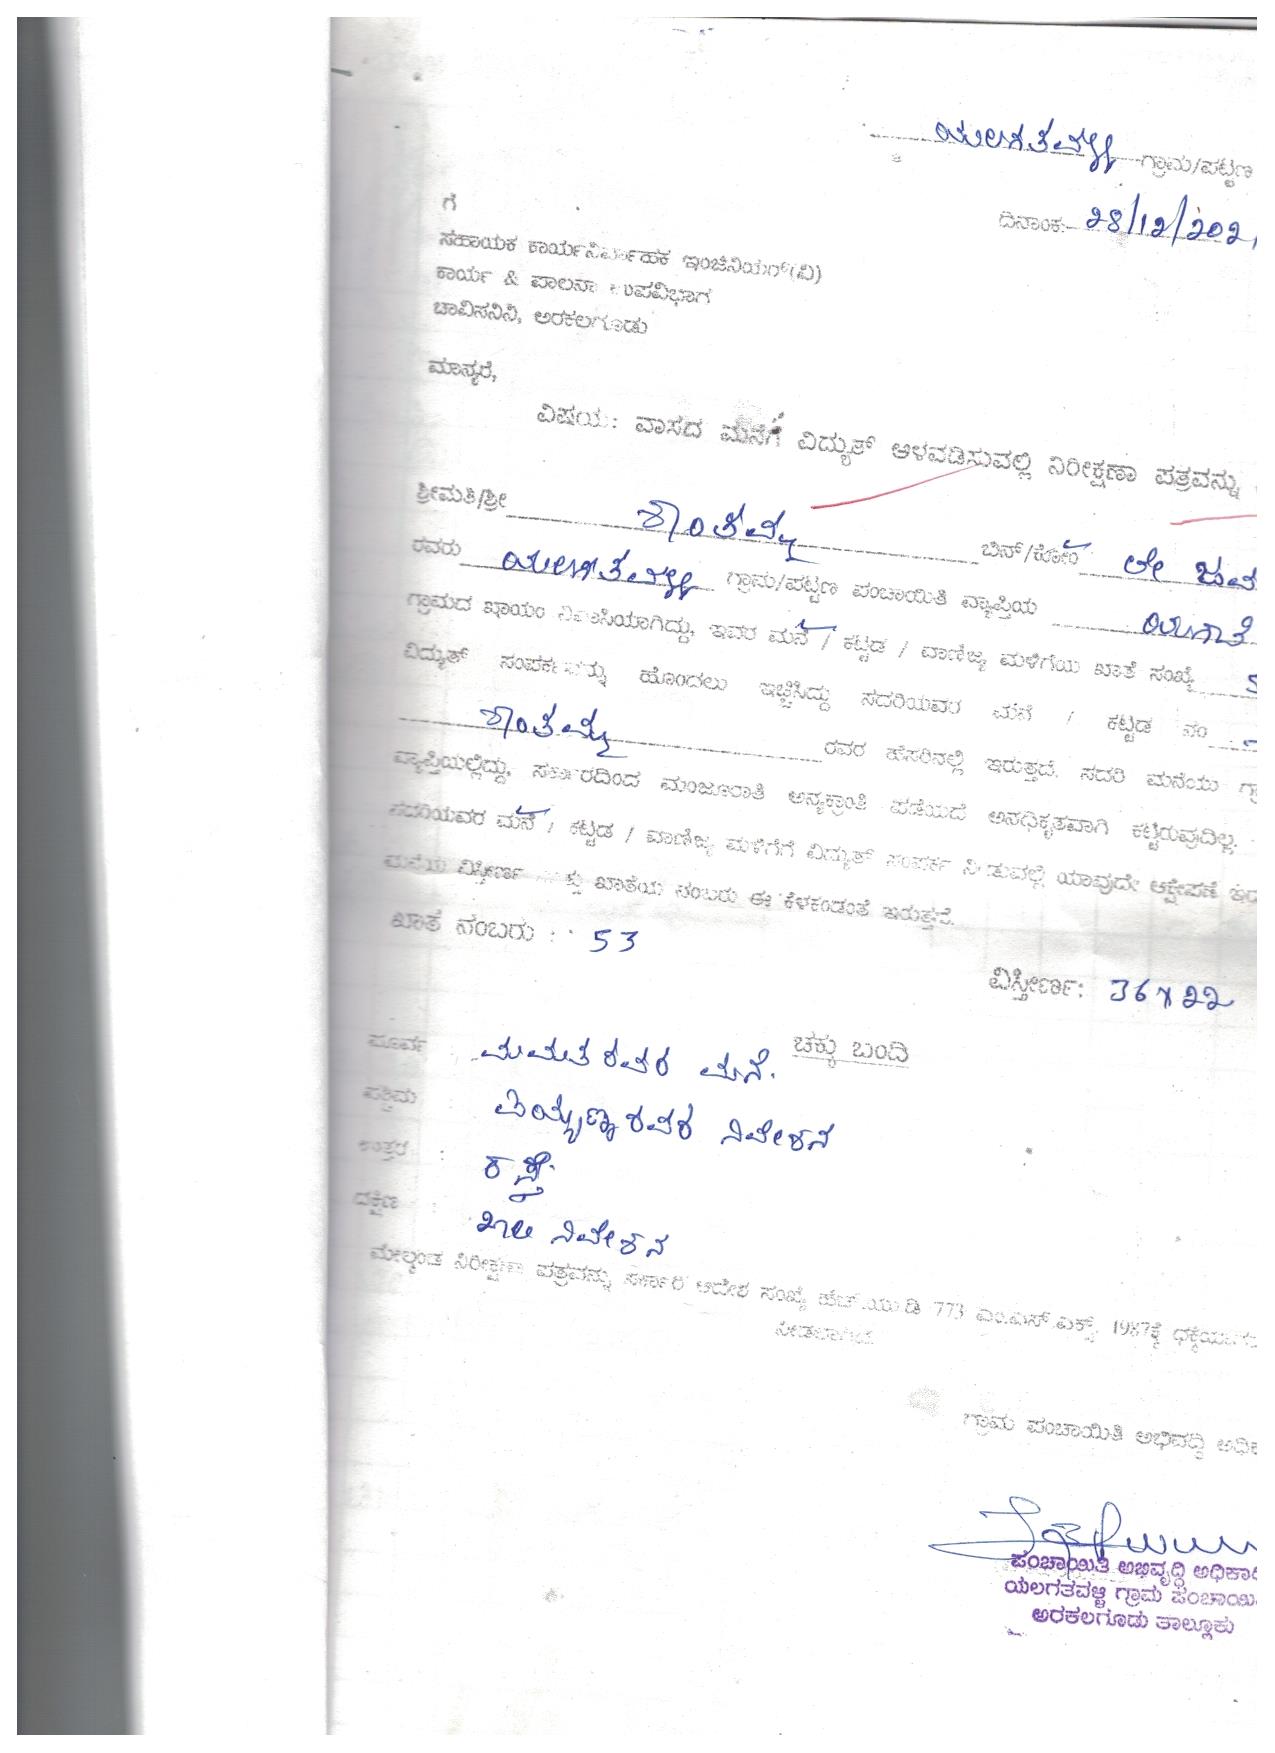 ಯಲಗತವಳ್ಳಿ ಗ್ರಾಮ/ಪಟ್ಟಣ
ದಿನಾಂಕ:- 28/12/202
ಗೆ
ಸಹಾಯಕ ಕಾರ್ಯನಿರ್ವಾಹಕ ಇಂಜಿನಿಯರ್(ವಿ)
ಕಾರ್ಯ & ಪಾಲನಾ ಉಪವಿಭಾಗ
ಚಾವಿಸನಿನಿ, ಅರಕಲಗೂಡು
ಮಾನ್ಯರೆ,
ವಿಷಯ: ವಾಸದ ಮನೆಗೆ ವಿದ್ಯುತ್ ಅಳವಡಿಸುವಲ್ಲಿ ನಿರೀಕ್ಷಣಾ ಪತ್ರವನ್ನು
ಶ್ರೀಮತಿ/ಶ್ರೀ ಶಾಂತಮ್ಮ ಬಿನ್/ಕೋಂ ಲೇ
ರವರು ಯಲಗತವಳ್ಳಿ ಗ್ರಾಮ/ಪಟ್ಟಣ ಪಂಚಾಯಿತಿ ವ್ಯಾಪ್ತಿಯ
ಗ್ರಾಮದ ಖಾಯಂ ನಿವಾಸಿಯಾಗಿದ್ದು, ಇವರ ಮನೆ / ಕಟ್ಟಡ / ವಾಣಿಜ್ಯ ಮಳಿಗೆಯ ಖಾತೆ ಸಂಖ್ಯೆ
ವಿದ್ಯುತ್ ಸಂಪರ್ಕವನ್ನು ಹೊಂದಲು ಇಚ್ಚಿಸಿದ್ದು ಸದರಿಯವರ ಮನೆ / ಕಟ್ಟಡ ನಂ
ಶಾಂತಮ್ಮ ರವರ ಹೆಸರಿನಲ್ಲಿ ಇರುತ್ತದೆ. ಸದರಿ ಮನೆಯು
ವ್ಯಾಪ್ತಿಯಲ್ಲಿದ್ದು, ಸರ್ಕಾರದಿಂದ ಮಂಜೂರಾತಿ ಅನ್ಯಕ್ರಾಂತಿ ಪಡೆಯದೆ ಅನಧಿಕೃತವಾಗಿ ಕಟ್ಟಿರುವುದಿಲ್ಲ.
ಸದರಿಯವರ ಮನೆ / ಕಟ್ಟಡ / ವಾಣಿಜ್ಯ ಮಳಿಗೆಗೆ ವಿದ್ಯುತ್ ಸಂಪರ್ಕ ನೀಡುವಲ್ಲಿ ಯಾವುದೇ ಆಕ್ಷೇಪಣೆ
ಮನೆಯ ವಿಸ್ತೀರ್ಣ ಮತ್ತು ಖಾತೆಯ ನಂಬರು ಈ ಕೆಳಕಂಡಂತೆ ಇರುತ್ತದೆ.
ಖಾತೆ ನಂಬರು : 53
ವಿಸ್ತೀರ್ಣ: 36x22
ಚಕ್ಕು ಬಂದಿ
ಪೂರ್ವ : ಮಮತರವರ ಮನೆ.
ಪಶ್ಚಿಮ ರವರ ನಿವೇಶನ
ಉತ್ತರ : ರಸ್ತೆ.
ದಕ್ಷಿಣ : ಖಾಲಿ ನಿವೇಶನ
ಮೇಲ್ಕಂಡ ನಿರೀಕ್ಷಣಾ ಪತ್ರವನ್ನು ಸರ್ಕಾರಿ ಆದೇಶ ಸಂಖ್ಯೆ ಹೆಚ್.ಯು.ಡಿ 773 ಎಂ.ಎಸ್.ಎಕ್ಸ್. 1987ಕ್ಕೆ
ನೀಡಲಾಗಿದೆ.
ಗ್ರಾಮ ಪಂಚಾಯಿತಿ ಅಭಿವದ್ದಿ
ಪಂಚಾಯಿತಿ ಅಭಿವೃದ್ಧಿ ಅಧಿಕಾರಿ
ಯಲಗತವಳ್ಳಿ ಗ್ರಾಮ ಪಂಚಾಯಿ
ಅರಕಲಗೂಡು ತಾಲ್ಲೂಕು